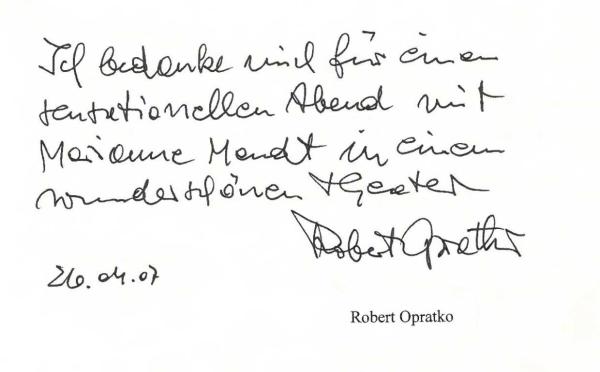 Ich bedanke mich für einen
sensationellen Abend mit
Marianne Mendt in einem
wunderschönen Theater
Robert Opratko
26.04.07
Robert Opratko